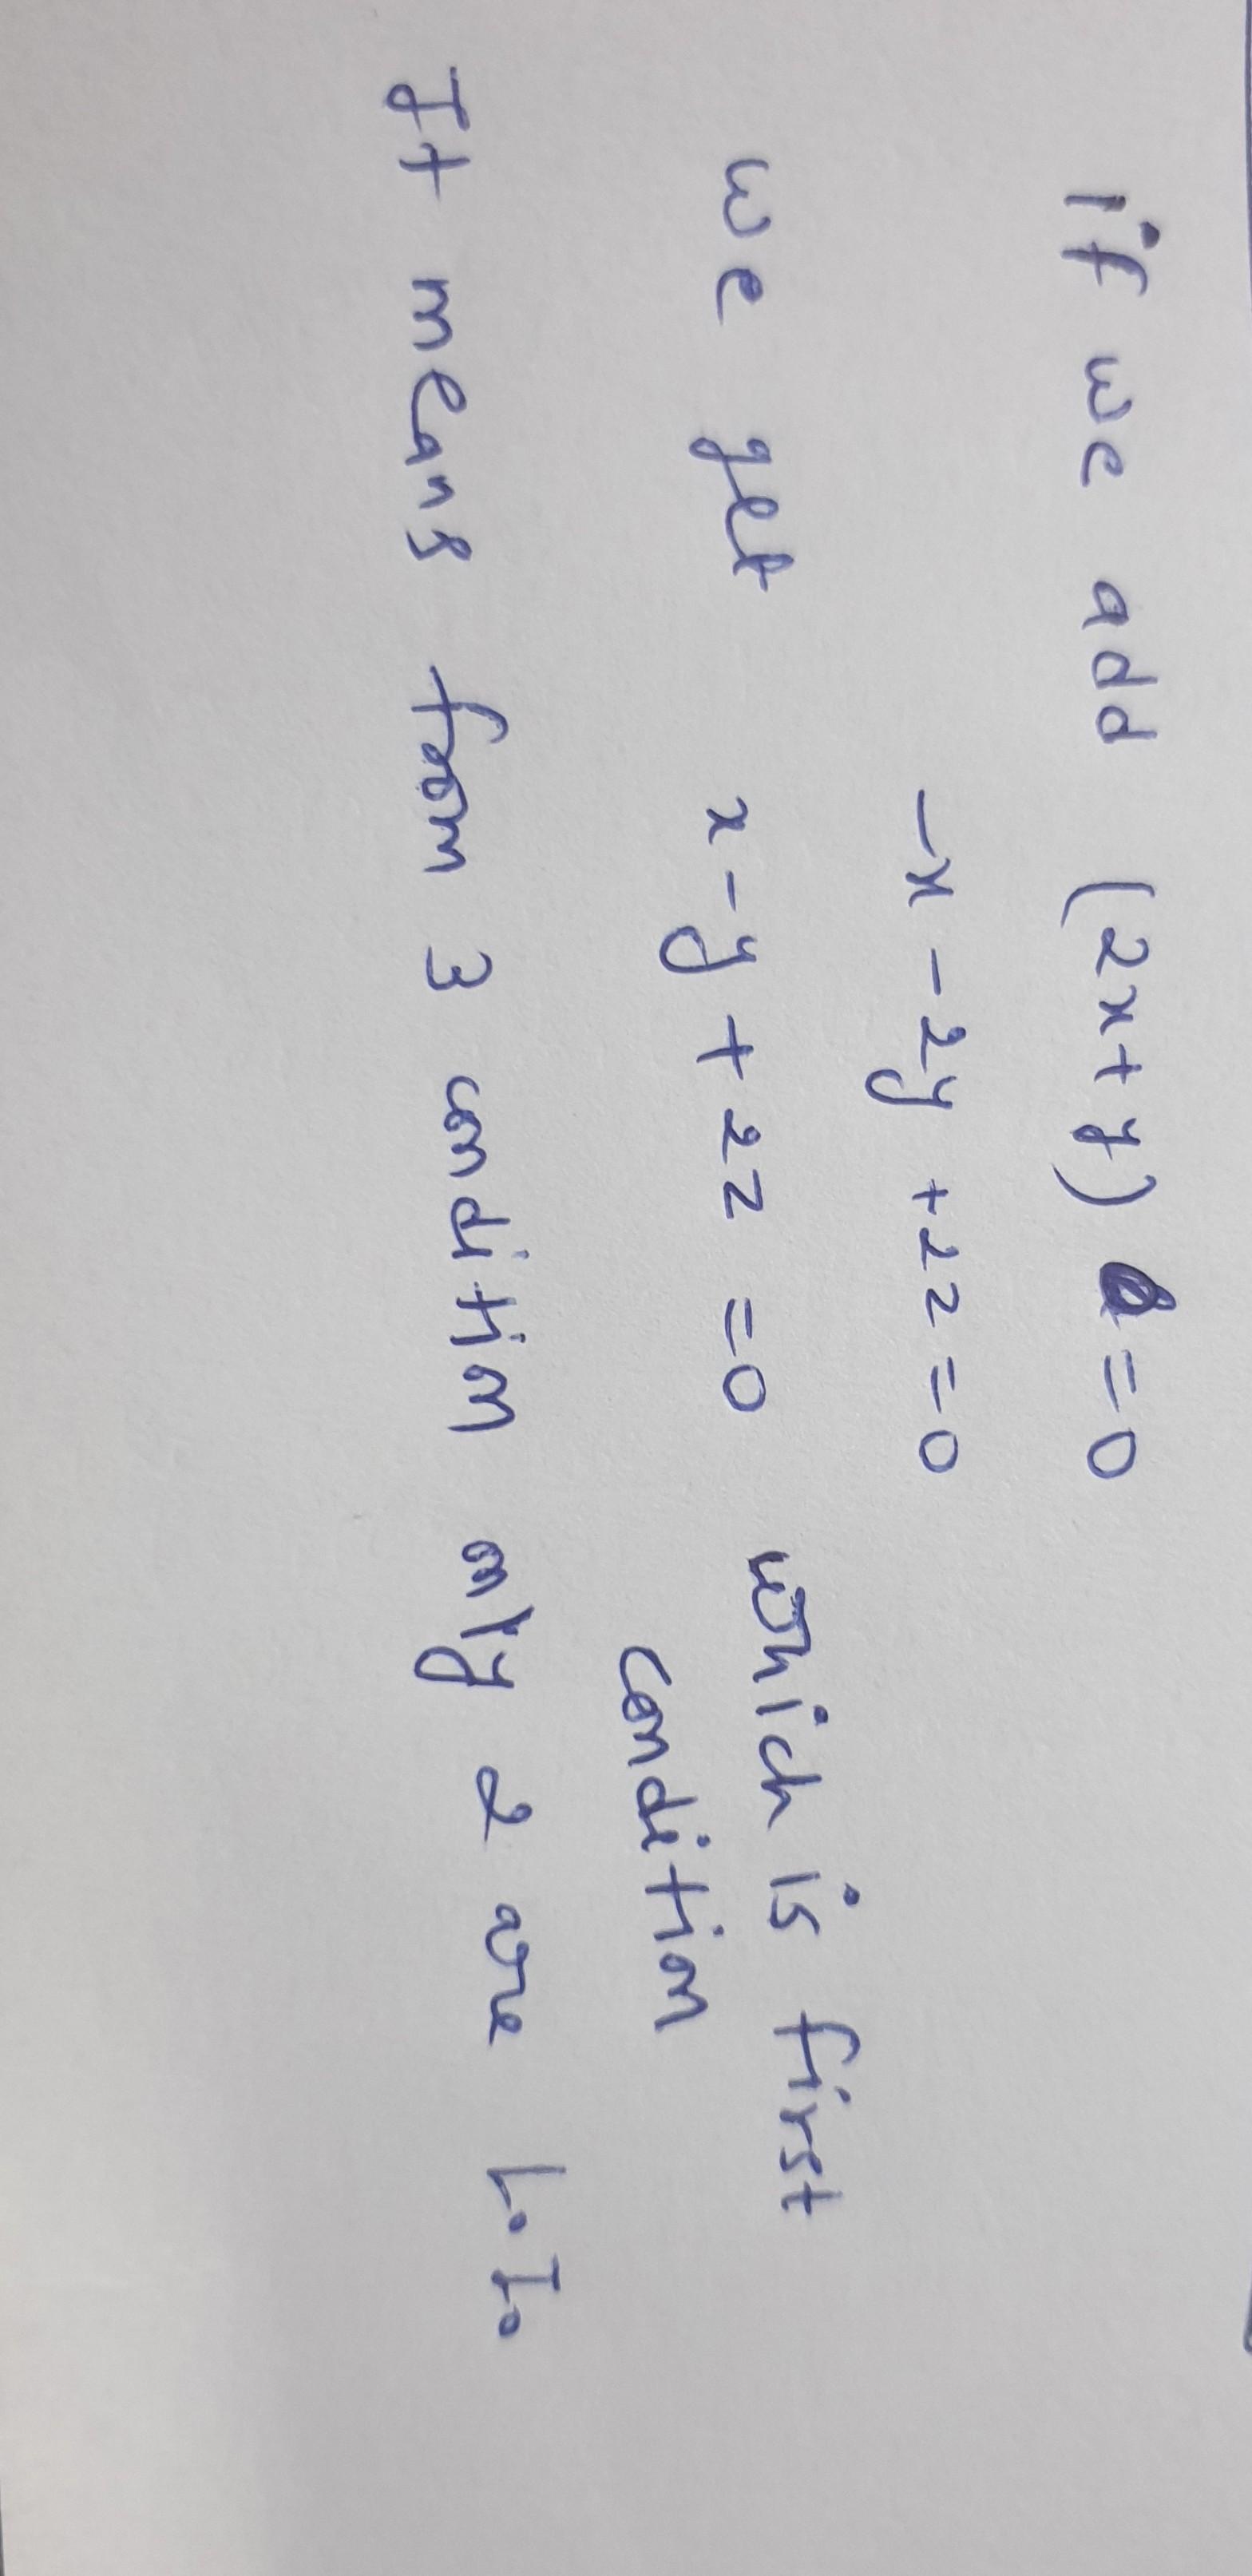 if we add (2x+y) =0
-x -2y +2z =0
we get x-y+2z =0 which is first
condition
It means from 3 condition only 2 are L.I.